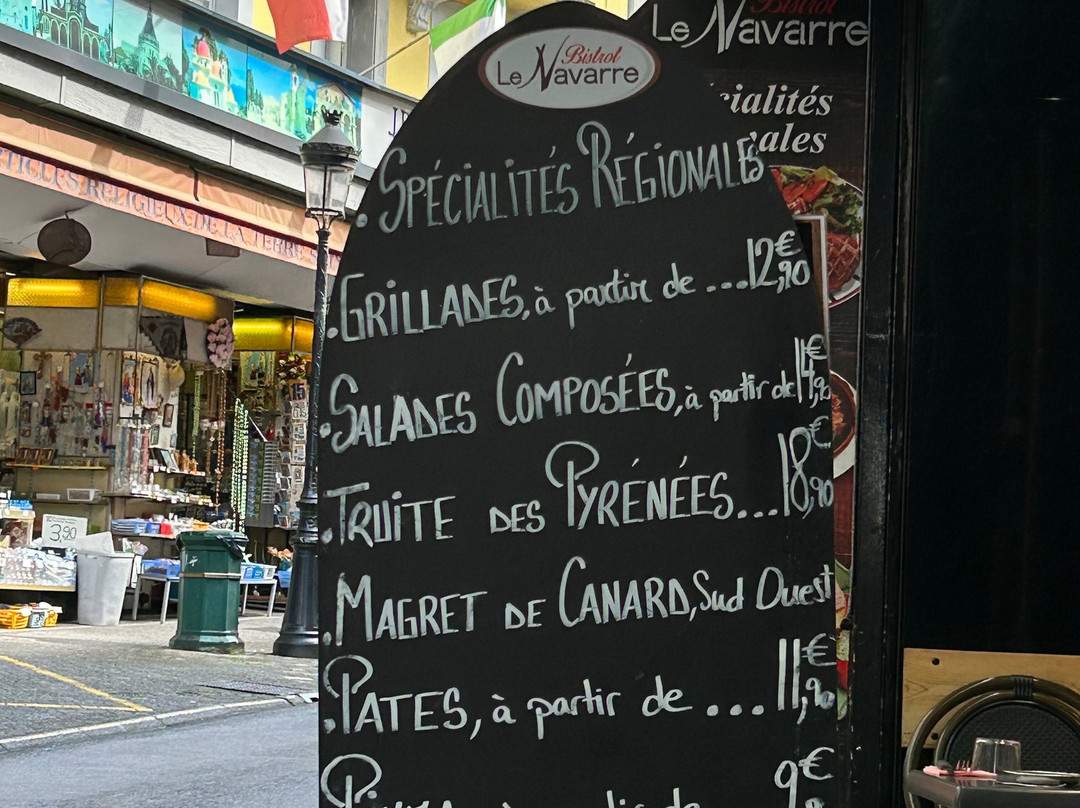 Bistrot
Le Navarre
Bistrot
Le Navarre
. SPÉCIALITÉS RÉGIONALES
. GRILLADES, à partir de ... 12,90€
. SALADES COMPOSÉES, à partir de 14,90€
. TRUITE DES PYRÉNÉES... 18,90€
. MAGRET DE CANARD, Sud Ouest
. PATES, à partir de ... 11,90€
9€
RELIGIEUX DE LA TERRE
3,90